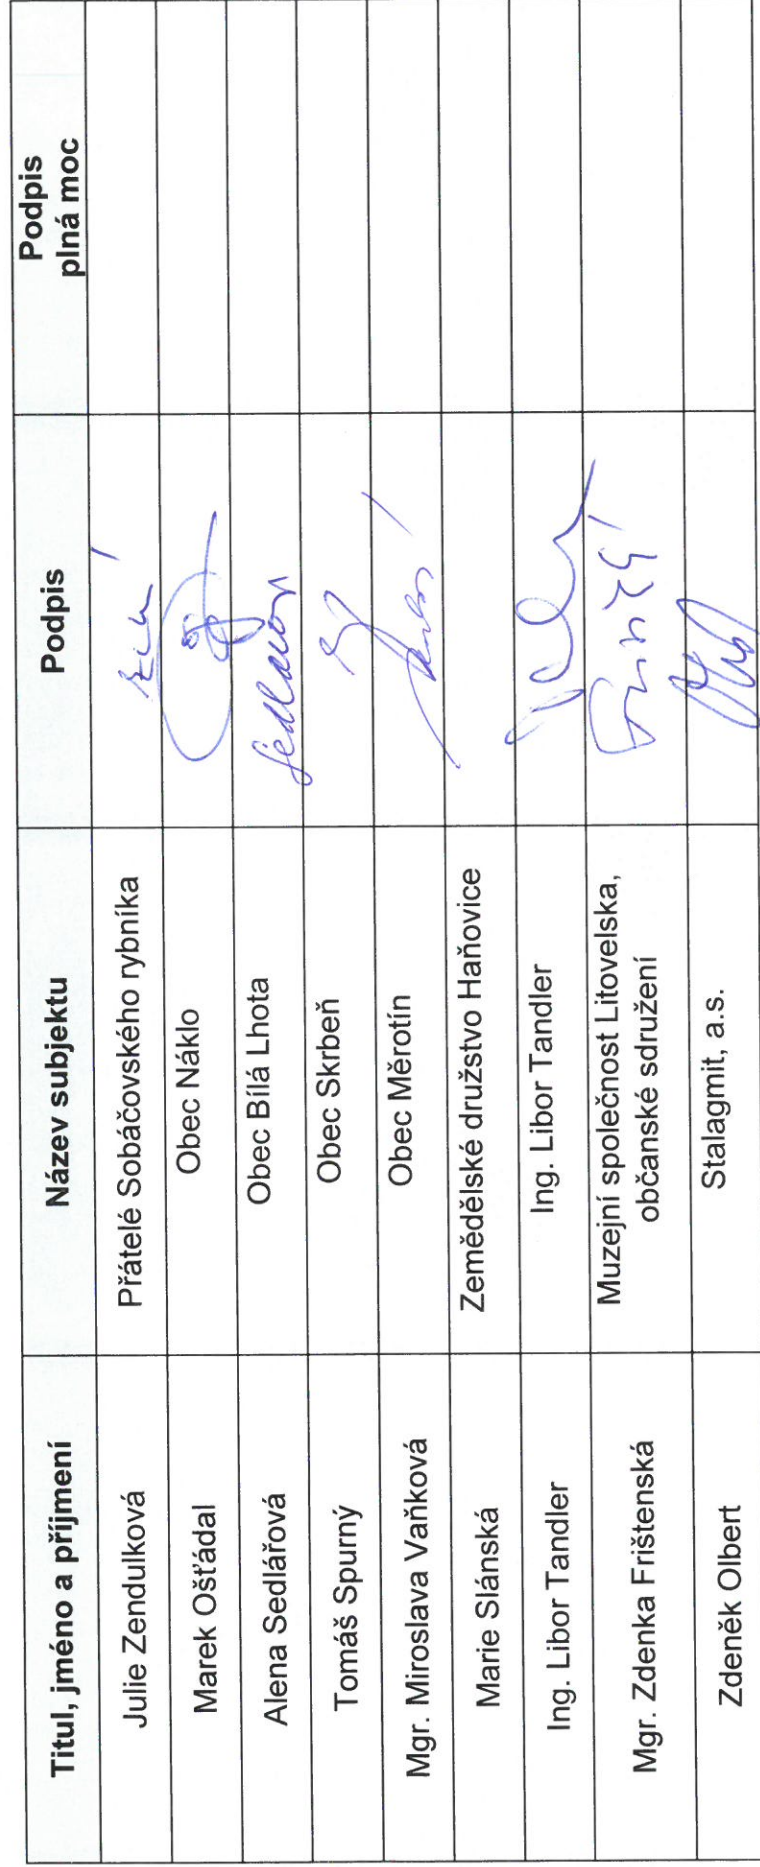 Titul, jméno a příjmení Název subjektu Podpis Podpis
plná moc
Julie Zendulková Přátelé Sobáčovského rybníka
Marek Ošťádal Obec Náklo
Alena Sedlářová Obec Bílá Lhota
Tomáš Spurný Obec Skrbeň
Mgr. Miroslava Vaňková Obec Měrotín
Marie Slánská Zemědělské družstvo Haňovice
Ing. Libor Tandler Ing. Libor Tandler
Mgr. Zdenka Frištenská Muzejní společnost Litovelska,
občanské sdružení
Zdeněk Olbert Stalagmit, a.s.